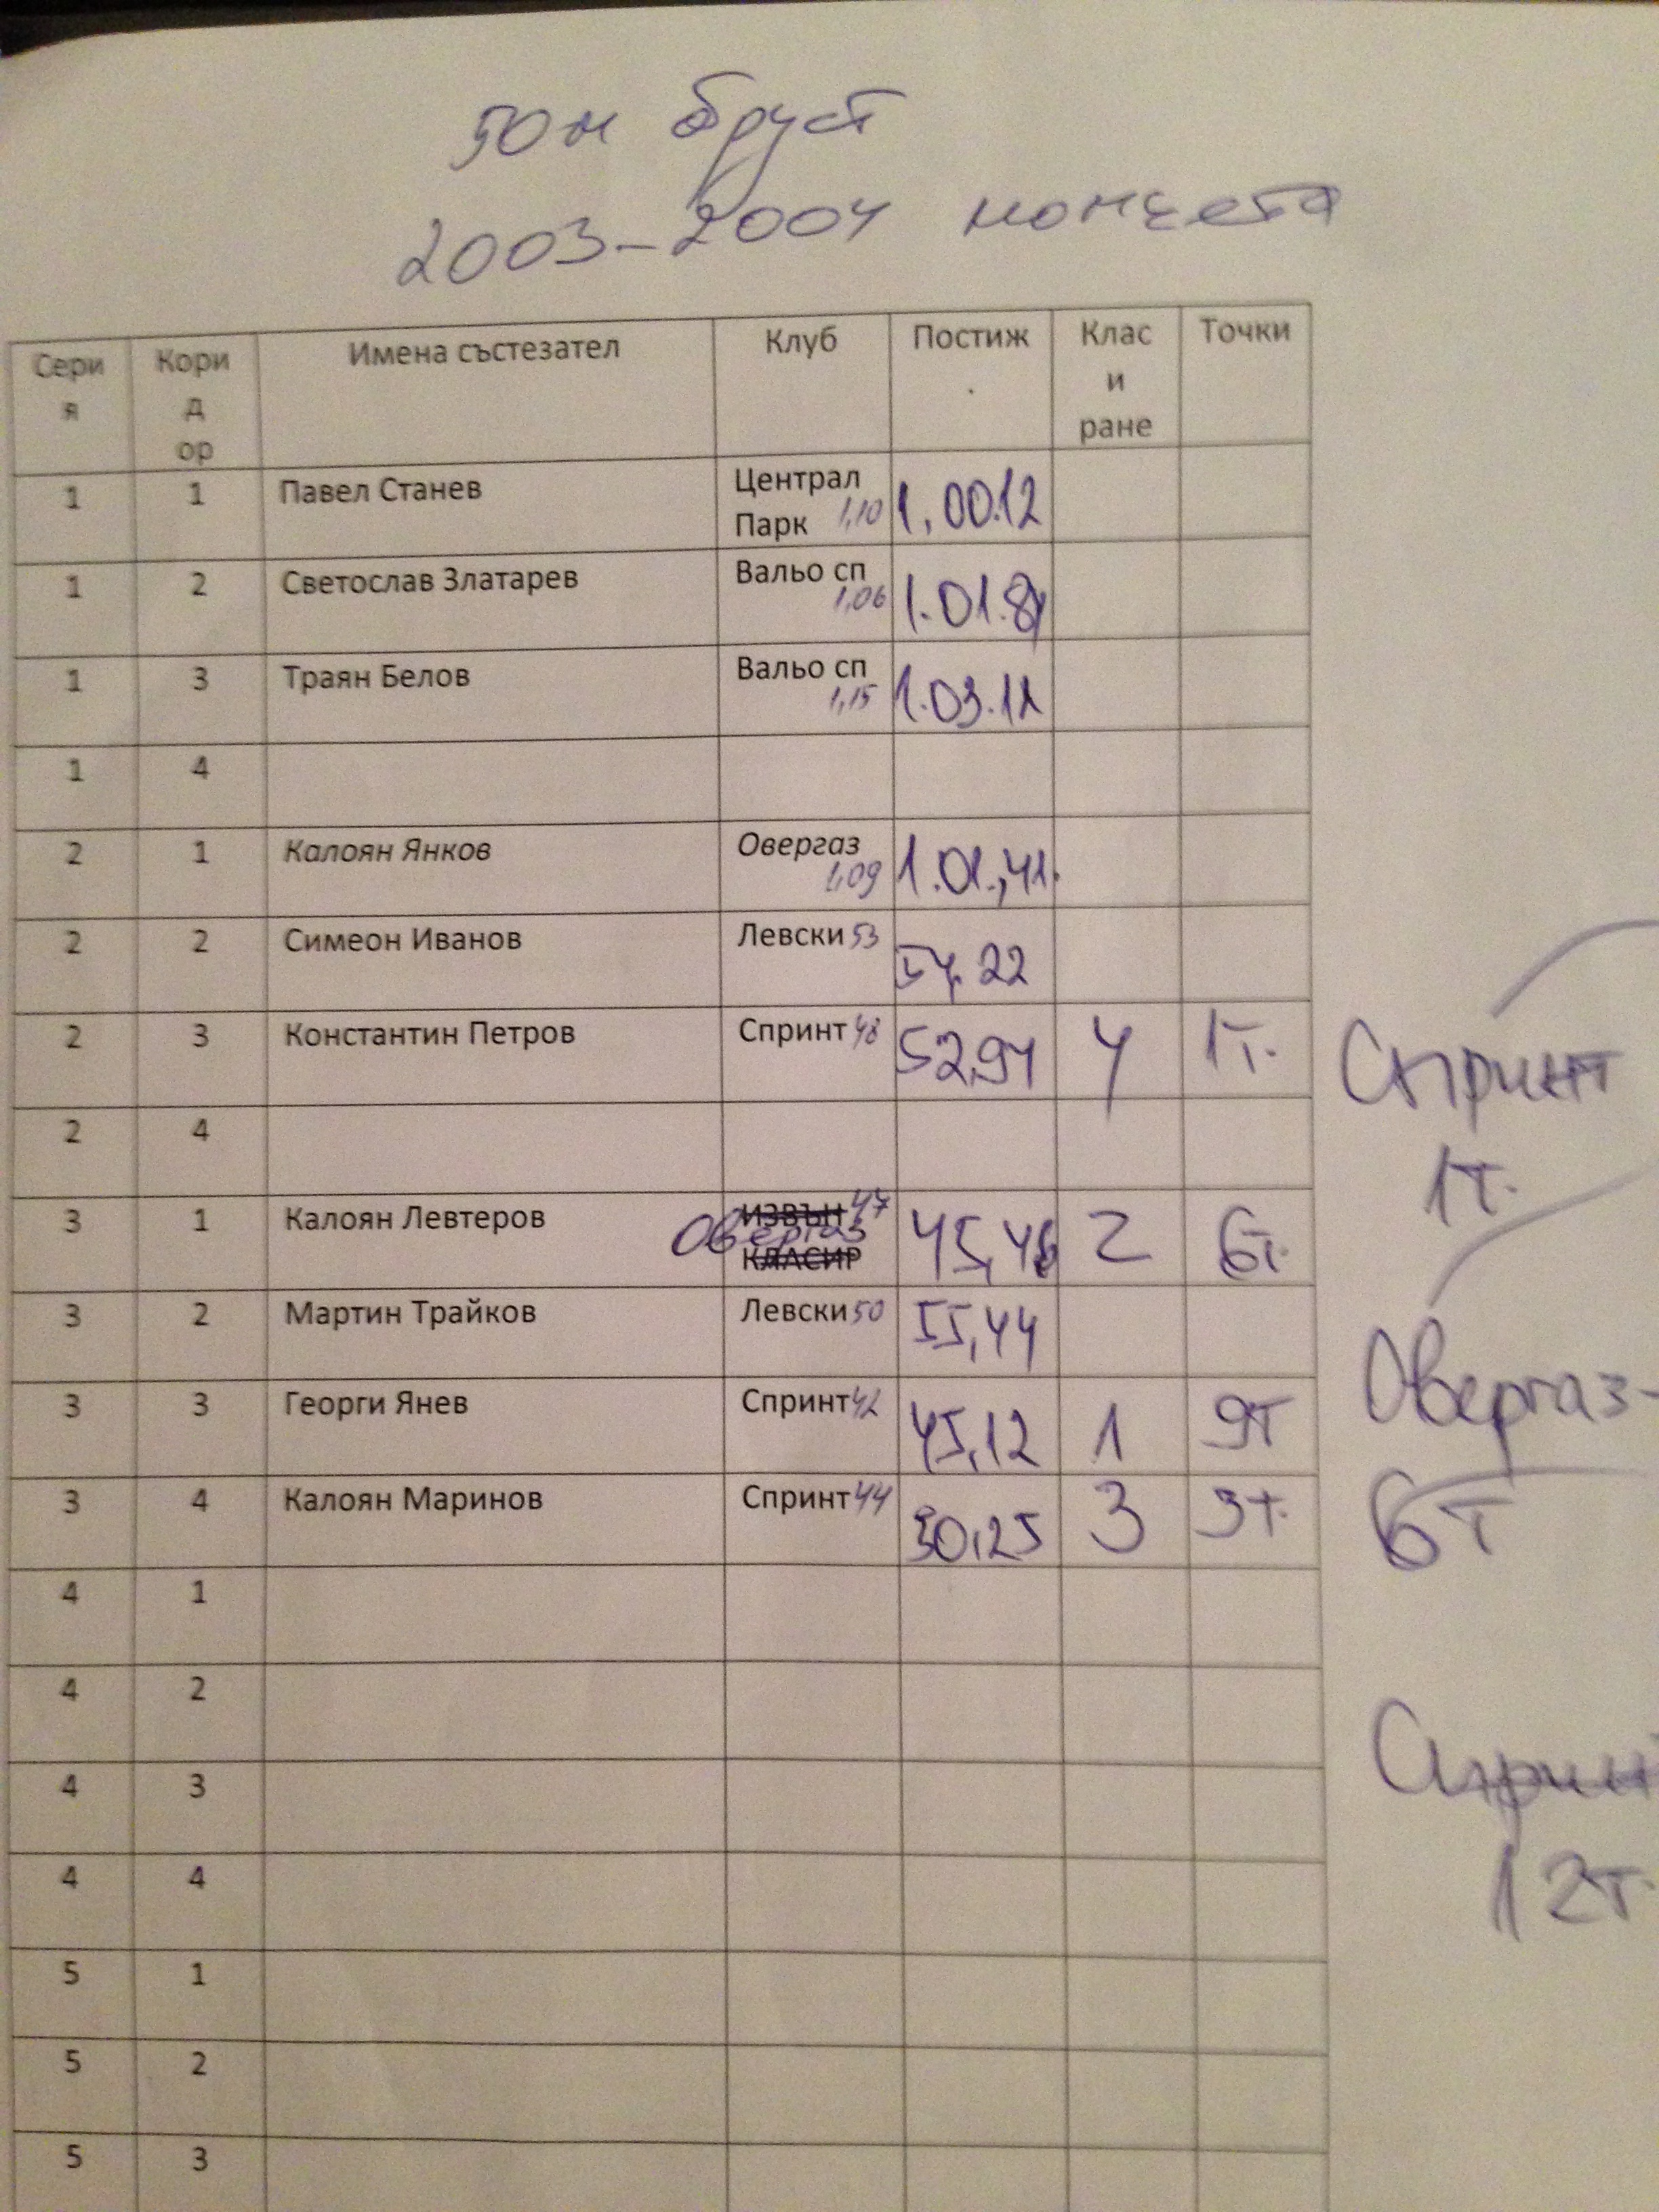 50м бруст
2003-2004 момчета
Сери
я
Кори
д
ор
Имена състезател
Клуб
Постиж
.
Клас
и
ране
Точки
1 1 Павел Станев Централ Парк 1,10 1,00.12
1 2 Светослав Златарев Вальо сп 1,06 1.01.84
1 3 Траян Белов Вальо сп 1,15 1.03.12
1 4
2 1 Калоян Янков Овергаз 1,09 1.01,41
2 2 Симеон Иванов Левски 53 54,22
2 3 Константин Петров Спринт 48 52,94 4 1т.
2 4
3 1 Калоян Левтеров ИЗВЪН КЛАСИР 47 Овергаз 45,46 2 6т.
3 2 Мартин Трайков Левски 50 55,44
3 3 Георги Янев Спринт 42 45,12 1 9т
3 4 Калоян Маринов Спринт 44 50,25 3 3т.
4 1
4 2
4 3
4 4
5 1
5 2
5 3
Спринт
1т.
Овергаз-
6т
Спринт
12т.